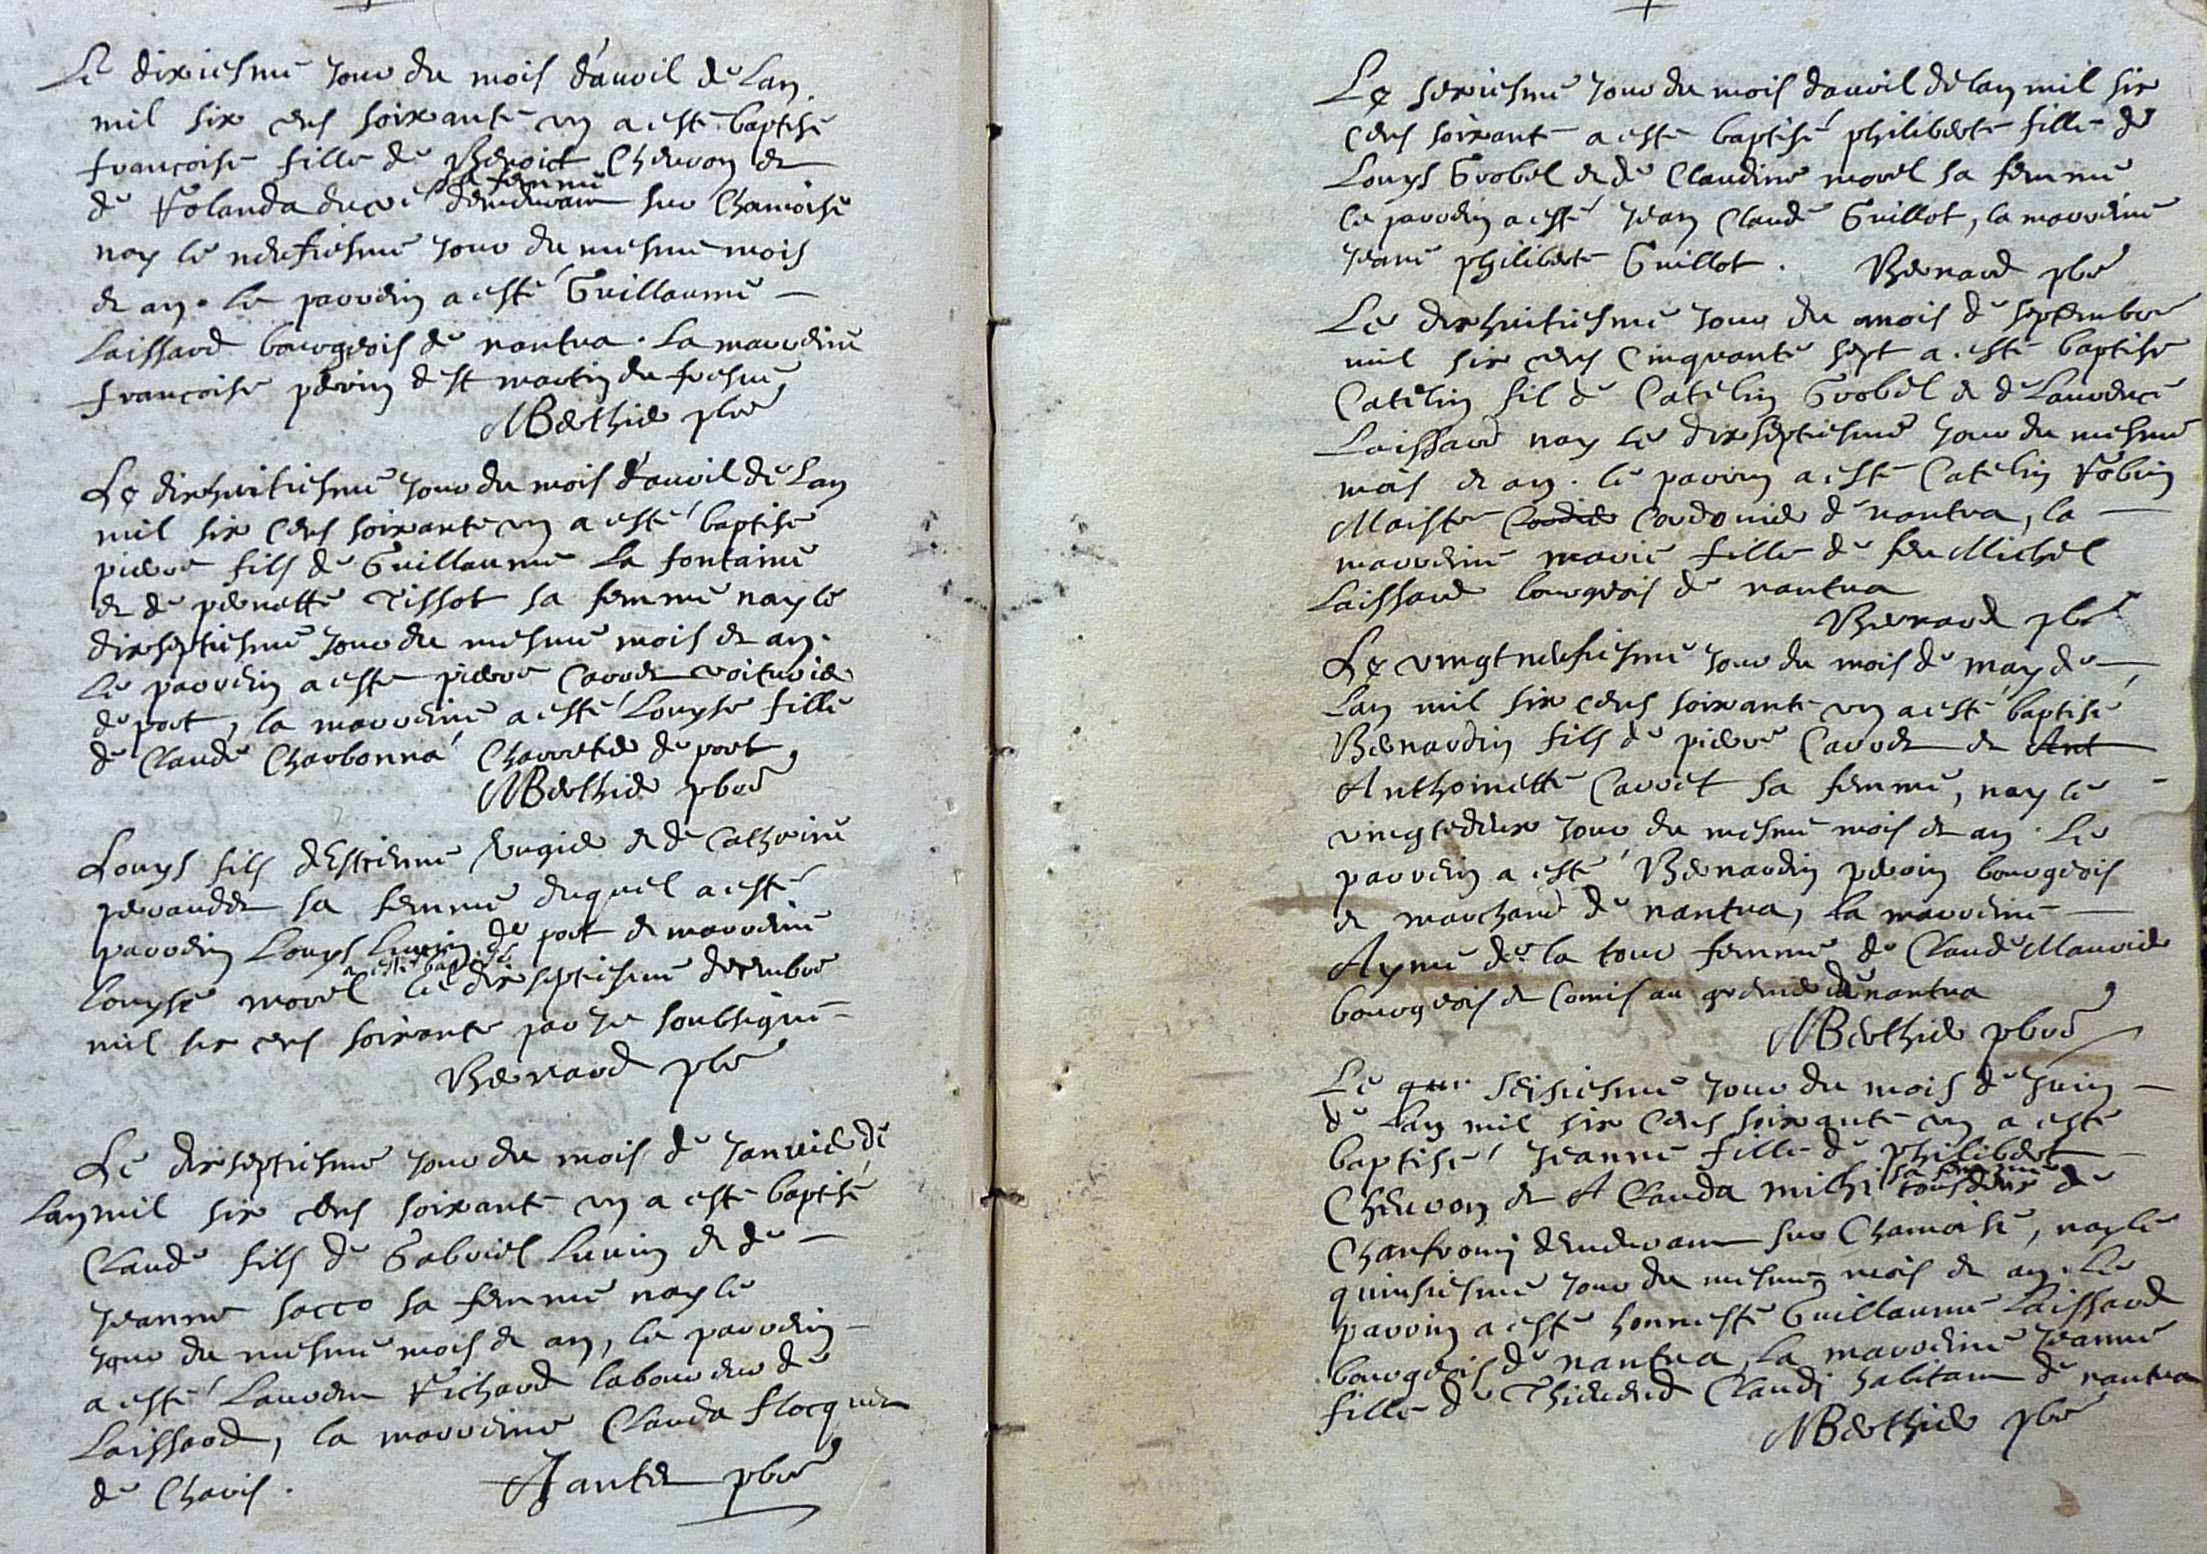 Le dixiesme jour du mois d'auril de Lan
mil six cens soixante un a esté baptisé
francoise fille de Benoict Cheuron et
de Rolanda ducré sa femme demeurant sur Chamoise
nay le neufiesme jour du mesme mois
et an. le parrein a esté Guillaume
Laissard bourgeois de nantua. La marreine
francoise perrin de st martin du fresne
MBerthier pbre
Le dixhuitiesme jour du mois d'auril de Lan
mil six cens soixante un a esté baptisé
pierre fils de Guillaume La fontaine
et de pernette Tissot sa femme nay le
dixseptiesme jour du mesme mois et an.
Le parrein a esté pierre Carret voiturier
de port, la marreine a esté Louyse fille
de Claude Charbonna Charretier de port
MBerthier pbre
Louys fils d'Estienne et de Catherine
sa femme duquel a esté
parrein Louys Luvin de port et marreine
Louyse morel a esté baptisé le dixseptiesme decembre
mil six cens soixante par je soubsigné
Bernard pbre
Le dixseptiesme jour du mois de Janvier de
Lan mil six cens soixante un a esté baptisé
Claude fils de Gabriel Luvin et de
Jeanne sacco sa femme nay le
jour du mesme mois et an, le parrein
a esté Laurent Richard laboureur de
Laissard, la marreine Clauda flocquet
de Charis.
Jantet pbre
Le seziesme jour du mois d'auril de lan mil six
cens soixante a esté baptisé philiberte fille de
Louys Grobel et de Claudine morel sa femme
le parrein a esté Jean Claude Guillot, la marreine
Jeane philiberte Guillot. Bernard pbre
Le dixhuitiesme jour du mois de septembre
mil six cens cinquante sept a esté baptisé
Catelin fil de Catelin Grobel et de Laurence
Laissard nay le dixseptiesme jour du mesme
mois et an. le parrin a esté Catelin Robin
Maistre Cordie Cordonier de nantua, la
marreine marie fille de feu Michel
Laissard bourgeois de nantua
Bernard pbre
Le vingtneufiesme jour du mois de may de
Lan mil six cens soixante un a esté baptisé
Bernardin fils de pierre Carret et Ant
Anthoinette Carret sa femme, nay le
vingtedeux jour du mesme mois et an. Le
parrein a esté Bernardin perrin bourgeois
et marchand de nantua, la marreine
Ayme de la tour femme de Claude Maurier
bourgeois et Comis au grenier de nantua
MBerthier pbre
Le qui seisiesme jour du mois de Juin
de Lan mil six cens soixante un a esté
baptisé Jeanne fille de philibert
Cheuron et A Clauda sa femme tous deux de
demeurant sur Chamoise, nay le
quinsiesme jour du mesme mois et an. Le
parrin a esté honneste Guillaume Laissard
bourgeois de nantua, la marreine Jeanne
fille de Claudi habitant de nantua
MBerthier pbre